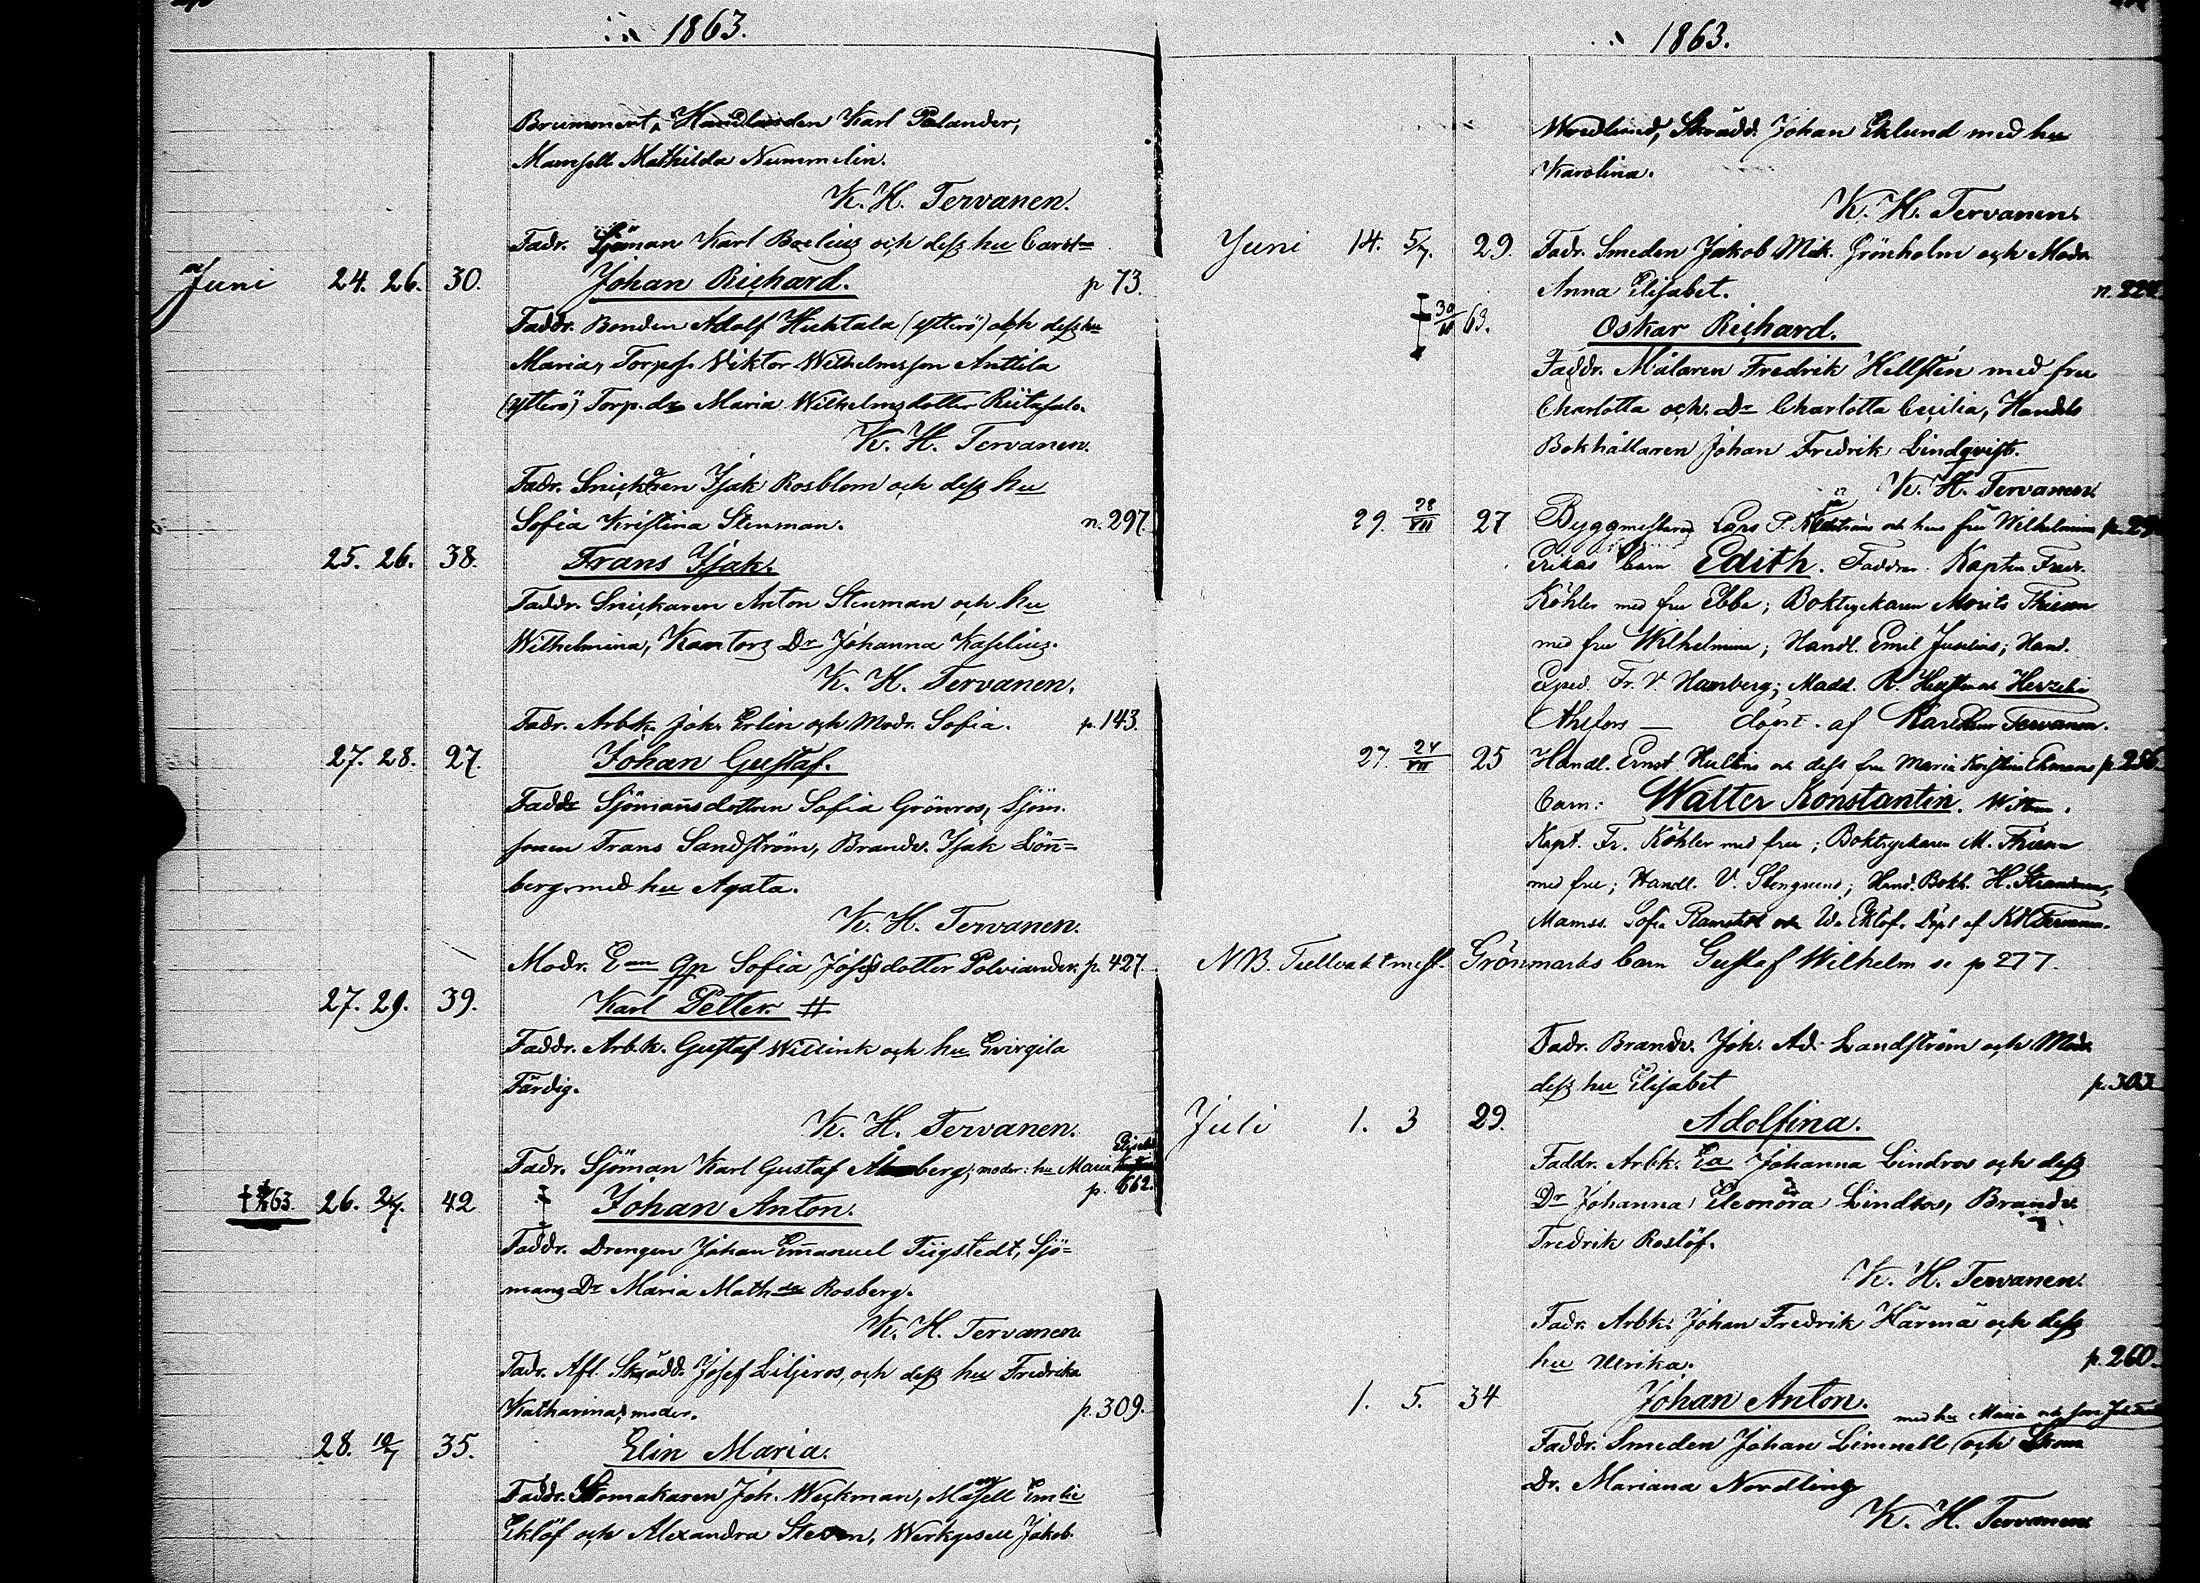 1863.
Brumment, Handlanden Karl Palander,
Mamsell Mathilda Nummelin.
K. H. Tervanen.
Fadr. Sjöman Karl Bælius och dess hu Carol=
Juni 24. 26. 30. Johan Richard. p 73.
Faddr. Bonden Adolf Huhtala (ytterö) och dess hu
Maria, Torps. Viktor Wilhelmsson Anttila
(ytterö) Torp. dr Maria Wilhelmsdotter Riitasalo.
K. H. Tervanen.
Fadr. Snickaren Isak Rosblom och dess hu
Sofia Kristina Stenman. n. 297.
25. 26. 38. Frans Isak.
Faddr. Snickaren Anton Stenman och hu
Wilhelmina, Kantors Dr Johanna Kaselius.
K. H. Tervanen.
Fadr. Arbk. Joh. Erlin och Modr. Sofia. p. 143.
27. 28. 27. Johan Gustaf.
Faddr Sjömansdottren Sofia Grönros, Sjöm.
sonen Frans Sandström, Brandv. Isak Lönn=
berg med hu Agata.
K. H. Tervanen.
Modr. Ean Qp Sofia Josefsdotter Polviander. p. 427.
27. 29. 39. Karl Petter. #
Faddr. Arb.k. Gustaf Willink och hu Evirgila
Färdig.
K. H. Tervanen.
Fadr. Sjöman Karl Gustaf moder: hu Maria
p. 662.
26. 2/7. 42 Johan Anton.
Faddr. Drengen Johan Emanuel Tiigstedt, Sjö=
mans Dr Maria Mathda Rosberg.
K. H. Tervanen
Fadr. Afl. Skrädd. Josef Liljeros, och dess hu Fredrika
Katharina, moder. p. 309.
28. 10/7 35. Elin Maria.
Faddr. Skomakaren Joh. Weckman, Mamsell Emlie
Eklöf och Alexandra Steven, Werkgesell Jakob
1863.
Skrädd. Johan Eklund med hu
Karolina.
K. H. Tervanen.
Juni 14. 5/7. 29. Fadr. Smeden Jakob Mik. Grönholm och Modr.
Anna Elisabet. n. 224
63. Oskar Richard.
Faddr. Målaren Fredrik Hellstén med fru
Charlotta och Dr Charlotta Cecilia, Handels
Bokhållaren Johan Fredrik Lindqvist.
K. H. Tervanen.
29. 28/VII 27 Byggmästaren Lars P. och hans fru Wilhelmina
Erikas barn Edith. Faddrar. Kapten Fredr.
Köhler med fru Ebba; Boktryckaren Morits Thiesen
med fru Wilhelmina; Handl. Emil Juselius; Hand.
Exped. Fr. V. Hamberg; Madd. R.
Ahlfors — döpt. af Karl Tervanen.
27. 24/VII 25 Handl. Ernst Hultins och dess fru Maria Kristina Ekmans p. 256
barn: Walter Konstantin.
Kapt. Fr. Köhler med fru; Boktryckaren M. Thiesen
med fru; Handl. V. Stengrund; Hand. Bokh. H. Strandman,
Mamss. Sofia Ramstedt och W. Eklöf. Döpt af K H Tervanen.
NB. Tullvaktmest. Grönmarks barn Gustaf Wilhelm se p 277.
Fadr. Brandv. Joh. Ad. Landström och Modr.
dess hu Elisabet p. 303
Juli 1. 3 29. Adolfina.
Faddr. Arbk. Ea Johanna Lindros och dess
Dr Johanna Eleonora Lindros, Brandv.
Fredrik Roslöf.
K. H. Tervanen.
Fadr. Arbk. Johan Fredrik Härmä och dess
hu Ulrika. p. 260.
1. 5. 34 Johan Anton.
med hu Maria och son
Faddr. Smeden Johan Limnell och
Dr. Mariana Nordling
K. H. Tervanen